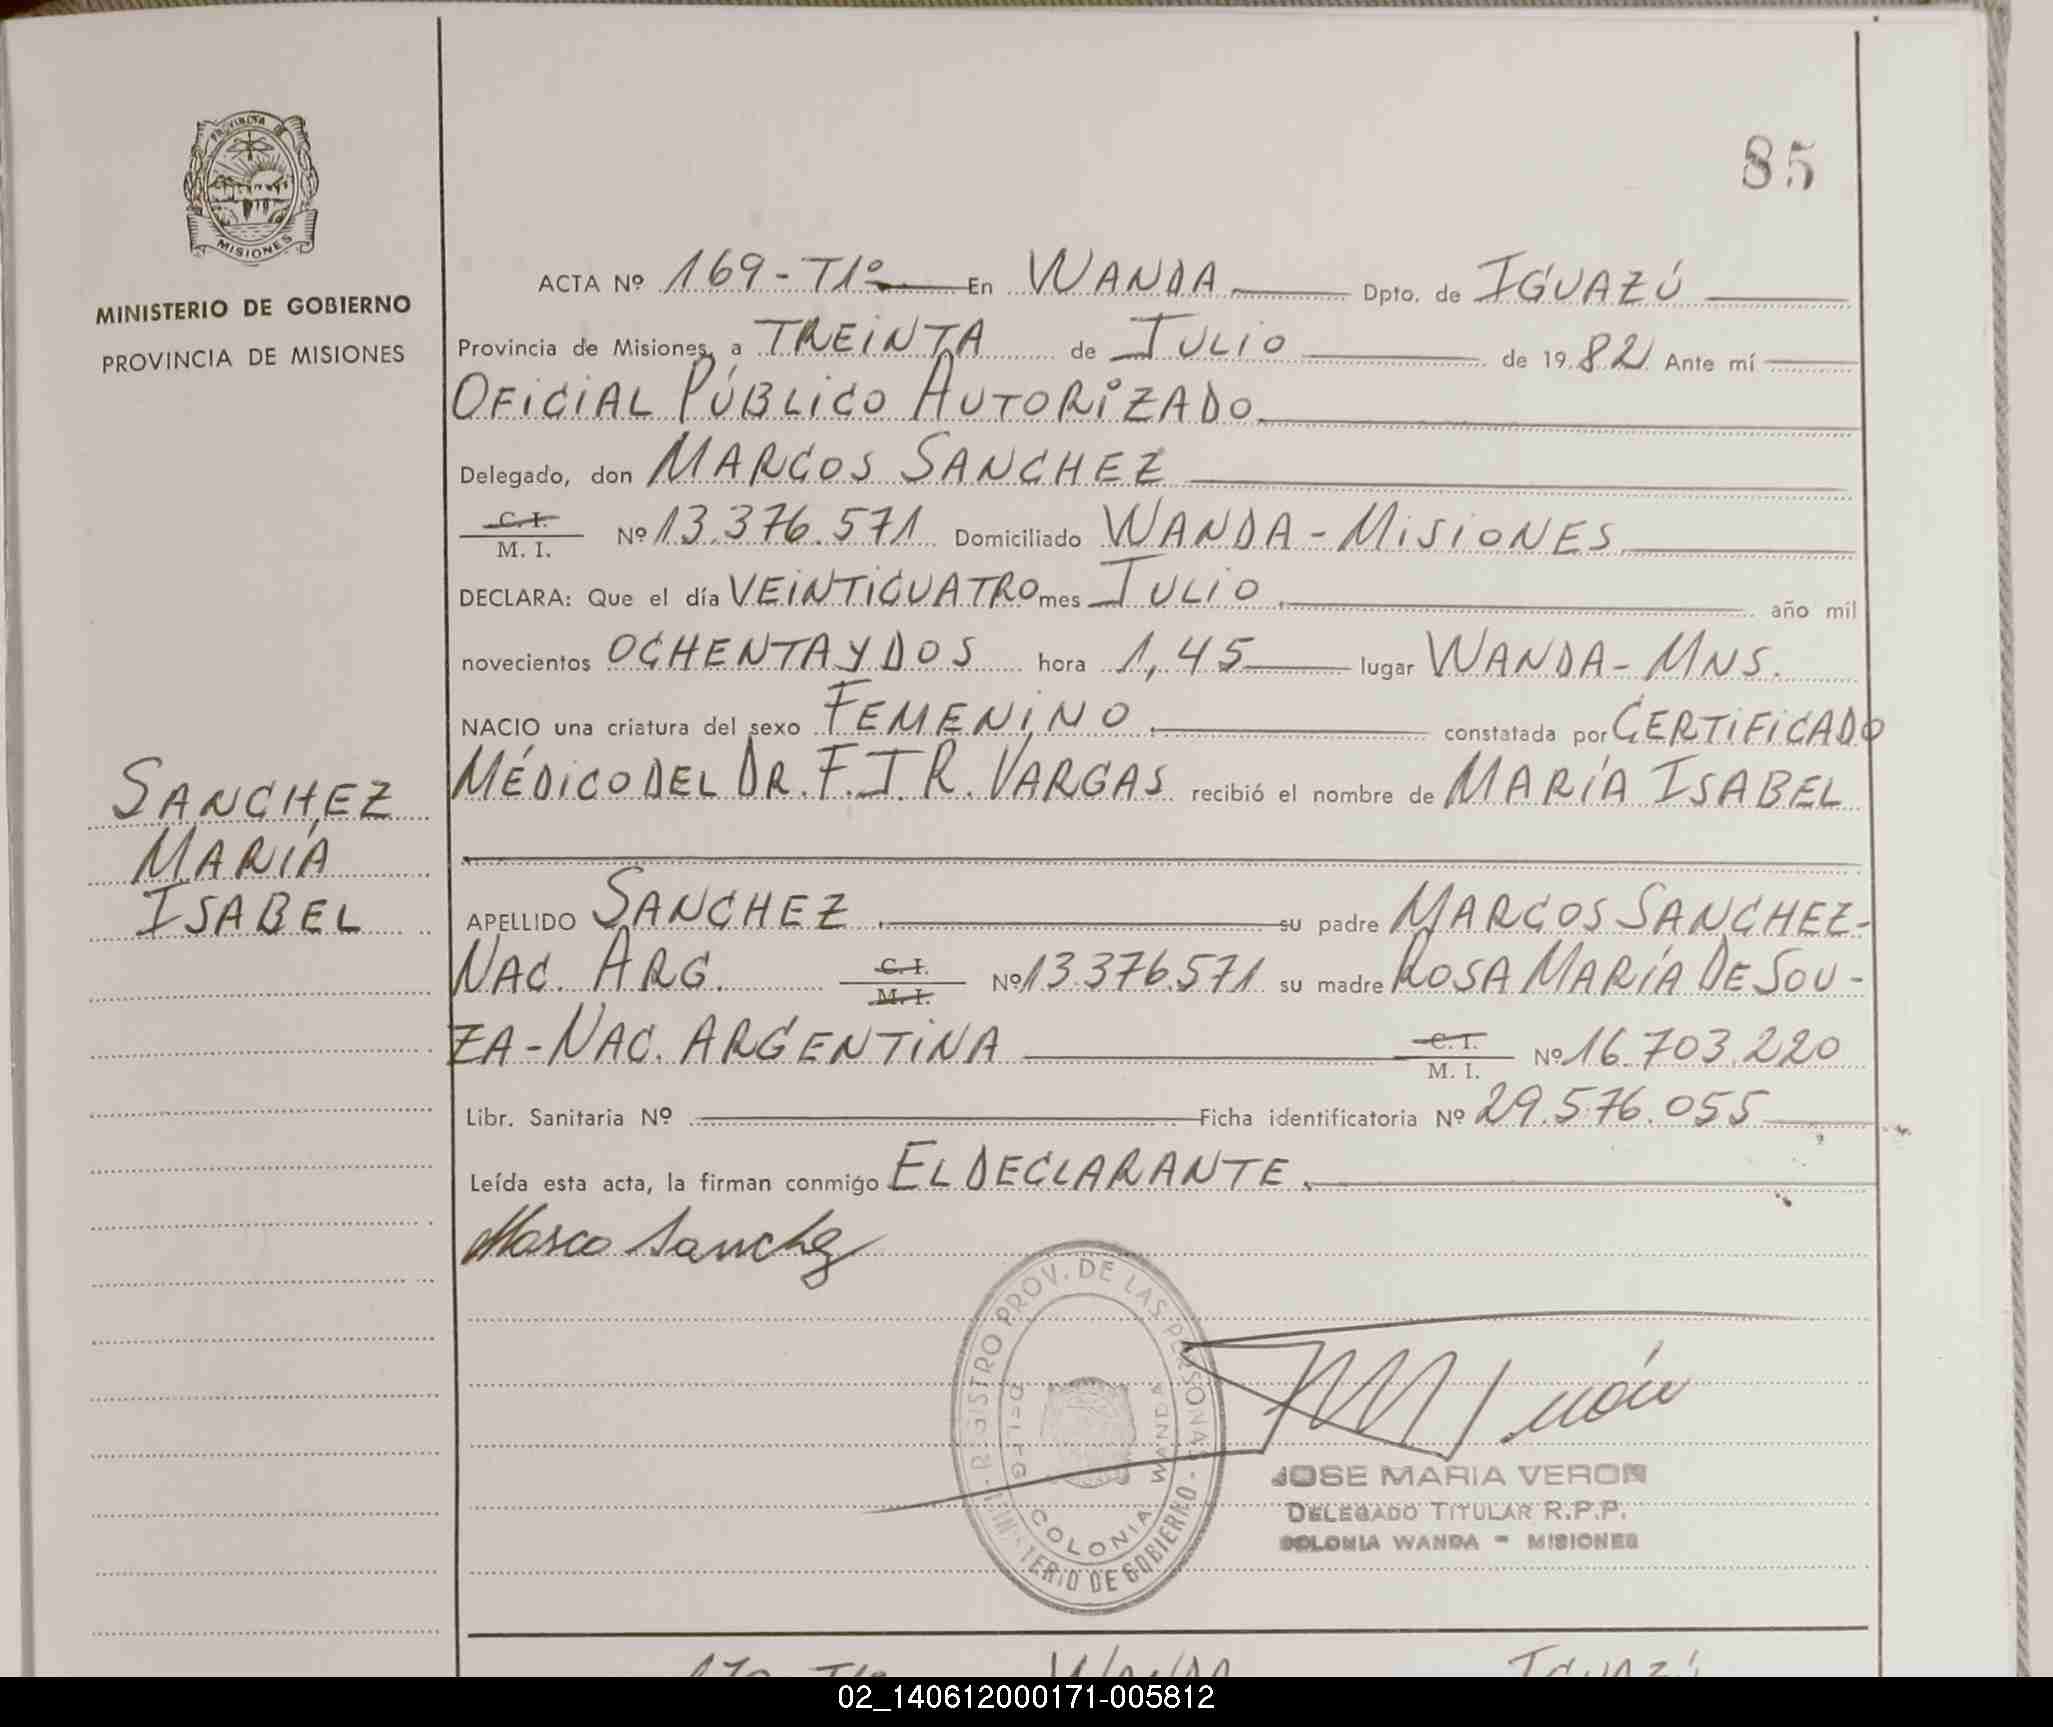 85
PROVINCIA DE
MISIONES
MINISTERIO DE GOBIERNO
PROVINCIA DE MISIONES
SANCHEZ
MARÍA
ISABEL
ACTA Nº 169-T1º En WANDA Dpto. de IGUAZÚ
Provincia de Misiones, a TREINTA de JULIO de 1982 Ante mí
OFICIAL PÚBLICO AUTORIZADO
Delegado, don MARCOS SANCHEZ
C. I.
M. I. Nº 13.376.571 Domiciliado WANDA-MISIONES
DECLARA: Que el día VEINTICUATRO mes JULIO año mil
novecientos OCHENTA Y DOS hora 1,45 lugar WANDA-MNS.
NACIO una criatura del sexo FEMENINO constatada por CERTIFICADO
MÉDICO DEL DR. F.J.R. VARGAS recibió el nombre de MARÍA ISABEL
APELLIDO SANCHEZ su padre MARCOS SANCHEZ-
NAC. ARG. C. I. M. I. Nº 13.376.571 su madre ROSA MARÍA DE SOU-
ZA-NAC. ARGENTINA C. I. M. I. Nº 16.703.220
Libr. Sanitaria Nº Ficha identificatoria Nº 29.576.055
Leída esta acta, la firman conmigo EL DECLARANTE.
Marco Sanchez
REGISTRO PROV. DE LAS PERSONAS
DELEG
COLONIA WANDA
DE GOBIERNO
JOSE MARIA VERON
DELEGADO TITULAR R.P.P.
COLONIA WANDA - MISIONES
02_140612000171-005812